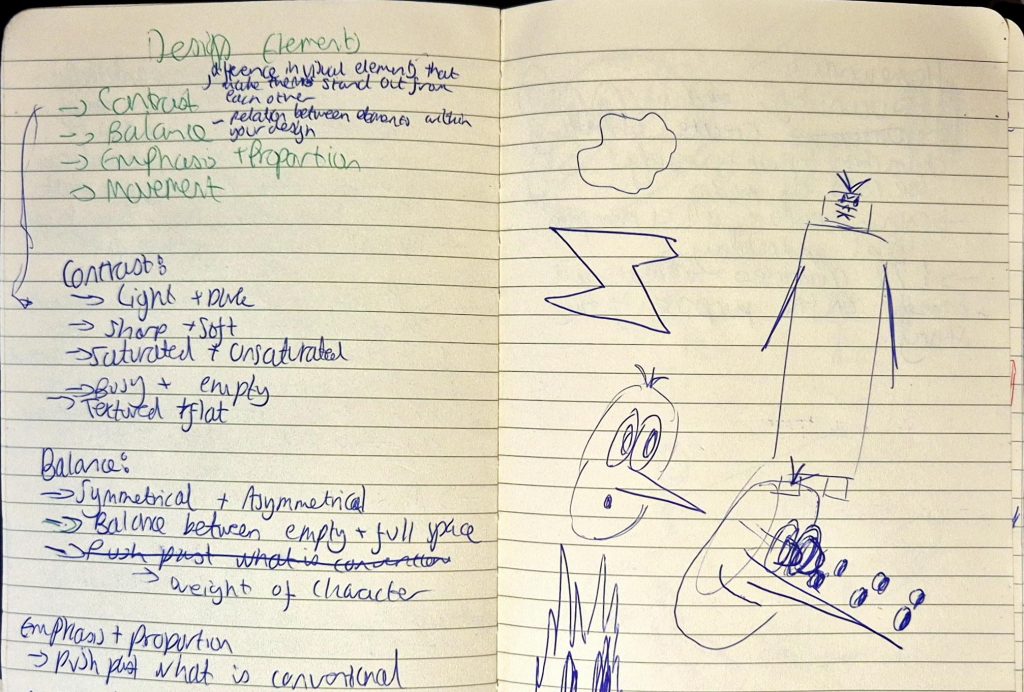 Design Elements
difference in visual elements that
make them stand out from
each other
→ Contrast
→ Balance - relation between elements within
your design
→ Emphasis + Proportion
→ Movement
Contrast:
→ Light + Dark
→ Sharp + Soft
→ Saturated + Unsaturated
→ Busy + empty
→ Textured + flat
Balance:
→ Symmetrical + Asymmetrical
→ Balance between empty + full space
→ Push past what is convention
→ weight of character
Emphasis + proportion
→ push past what is conventional